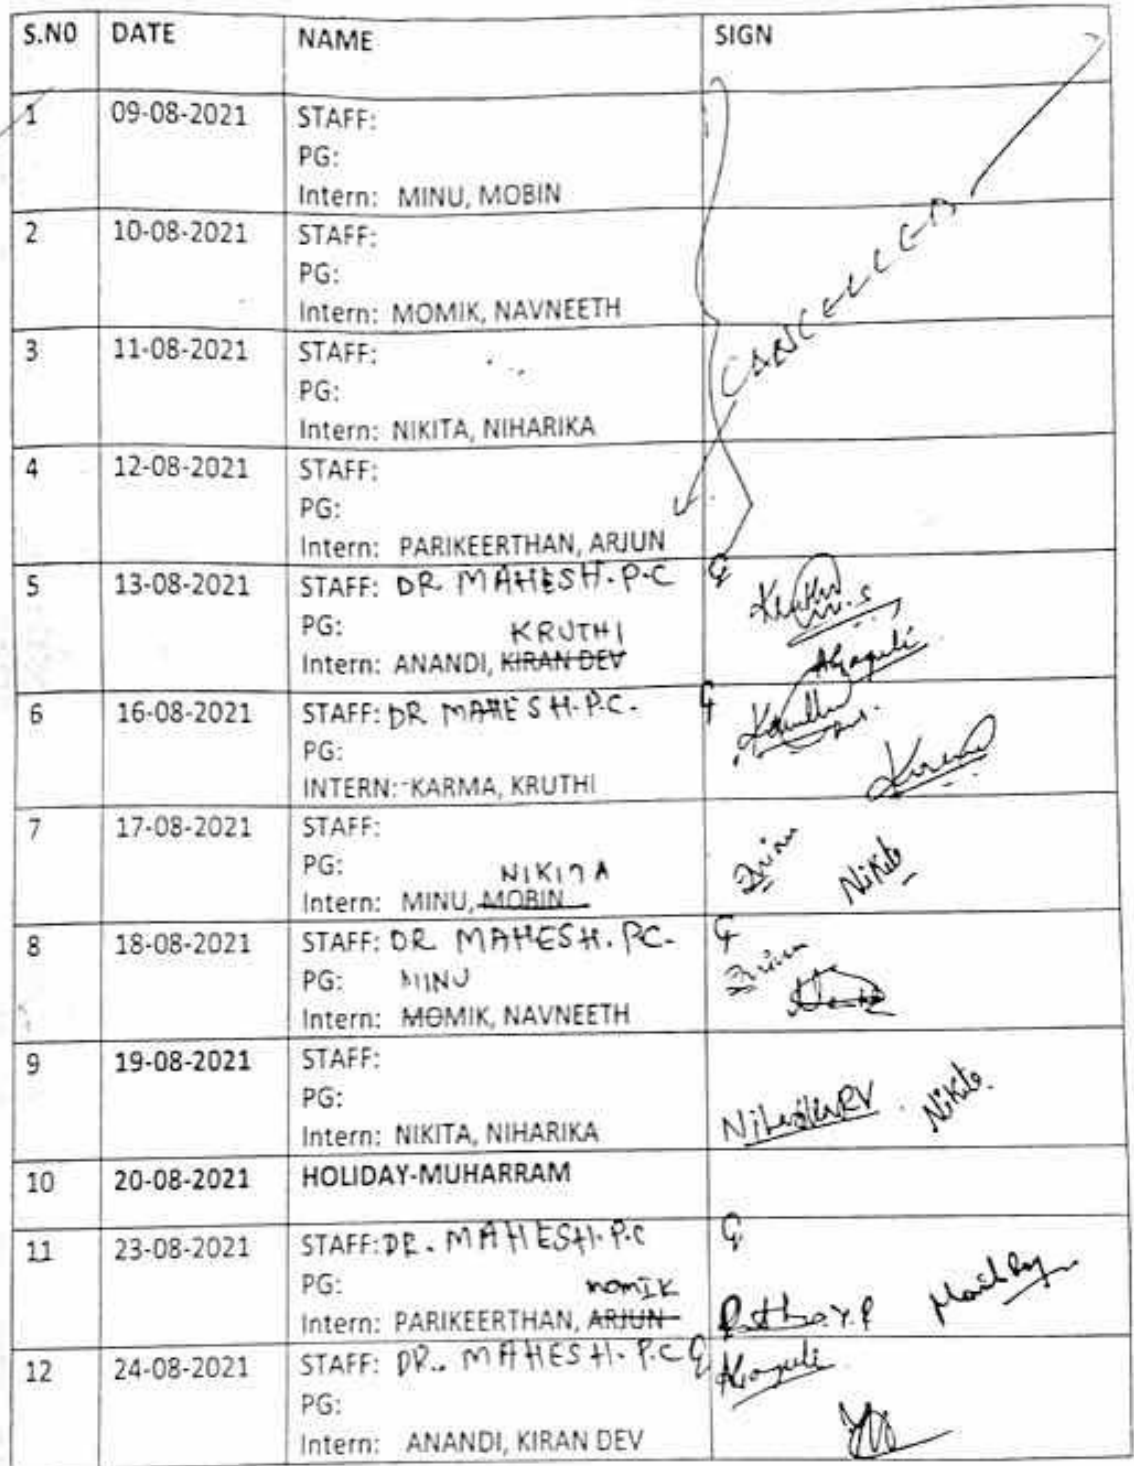 S.NO DATE NAME SIGN
1 09-08-2021 STAFF:
PG:
Intern: MINU, MOBIN
2 10-08-2021 STAFF:
PG:
Intern: MOMIK, NAVNEETH
CANCELLED
3 11-08-2021 STAFF:
PG:
Intern: NIKITA, NIHARIKA
4 12-08-2021 STAFF:
PG:
Intern: PARIKEERTHAN, ARJUN
5 13-08-2021 STAFF: DR MAHESH.P.C
PG:
KRUTHI
Intern: ANANDI, KIRAN DEV
6 16-08-2021 STAFF: DR MAHESH.P.C.
PG:
INTERN: KARMA, KRUTHI
7 17-08-2021 STAFF:
PG:
NIKITA
Intern: MINU, MOBIN
Nikita
8 18-08-2021 STAFF: DR MAHESH.PC.
PG:
MINU
Intern: MOMIK, NAVNEETH
9 19-08-2021 STAFF:
PG:
Intern: NIKITA, NIHARIKA
Nikita
10 20-08-2021 HOLIDAY-MUHARRAM
11 23-08-2021 STAFF: DR. MAHESH.P.C
PG:
MOMIK
Intern: PARIKEERTHAN, ARJUN
12 24-08-2021 STAFF: DR. MAHESH.P.C
PG:
Intern: ANANDI, KIRAN DEV